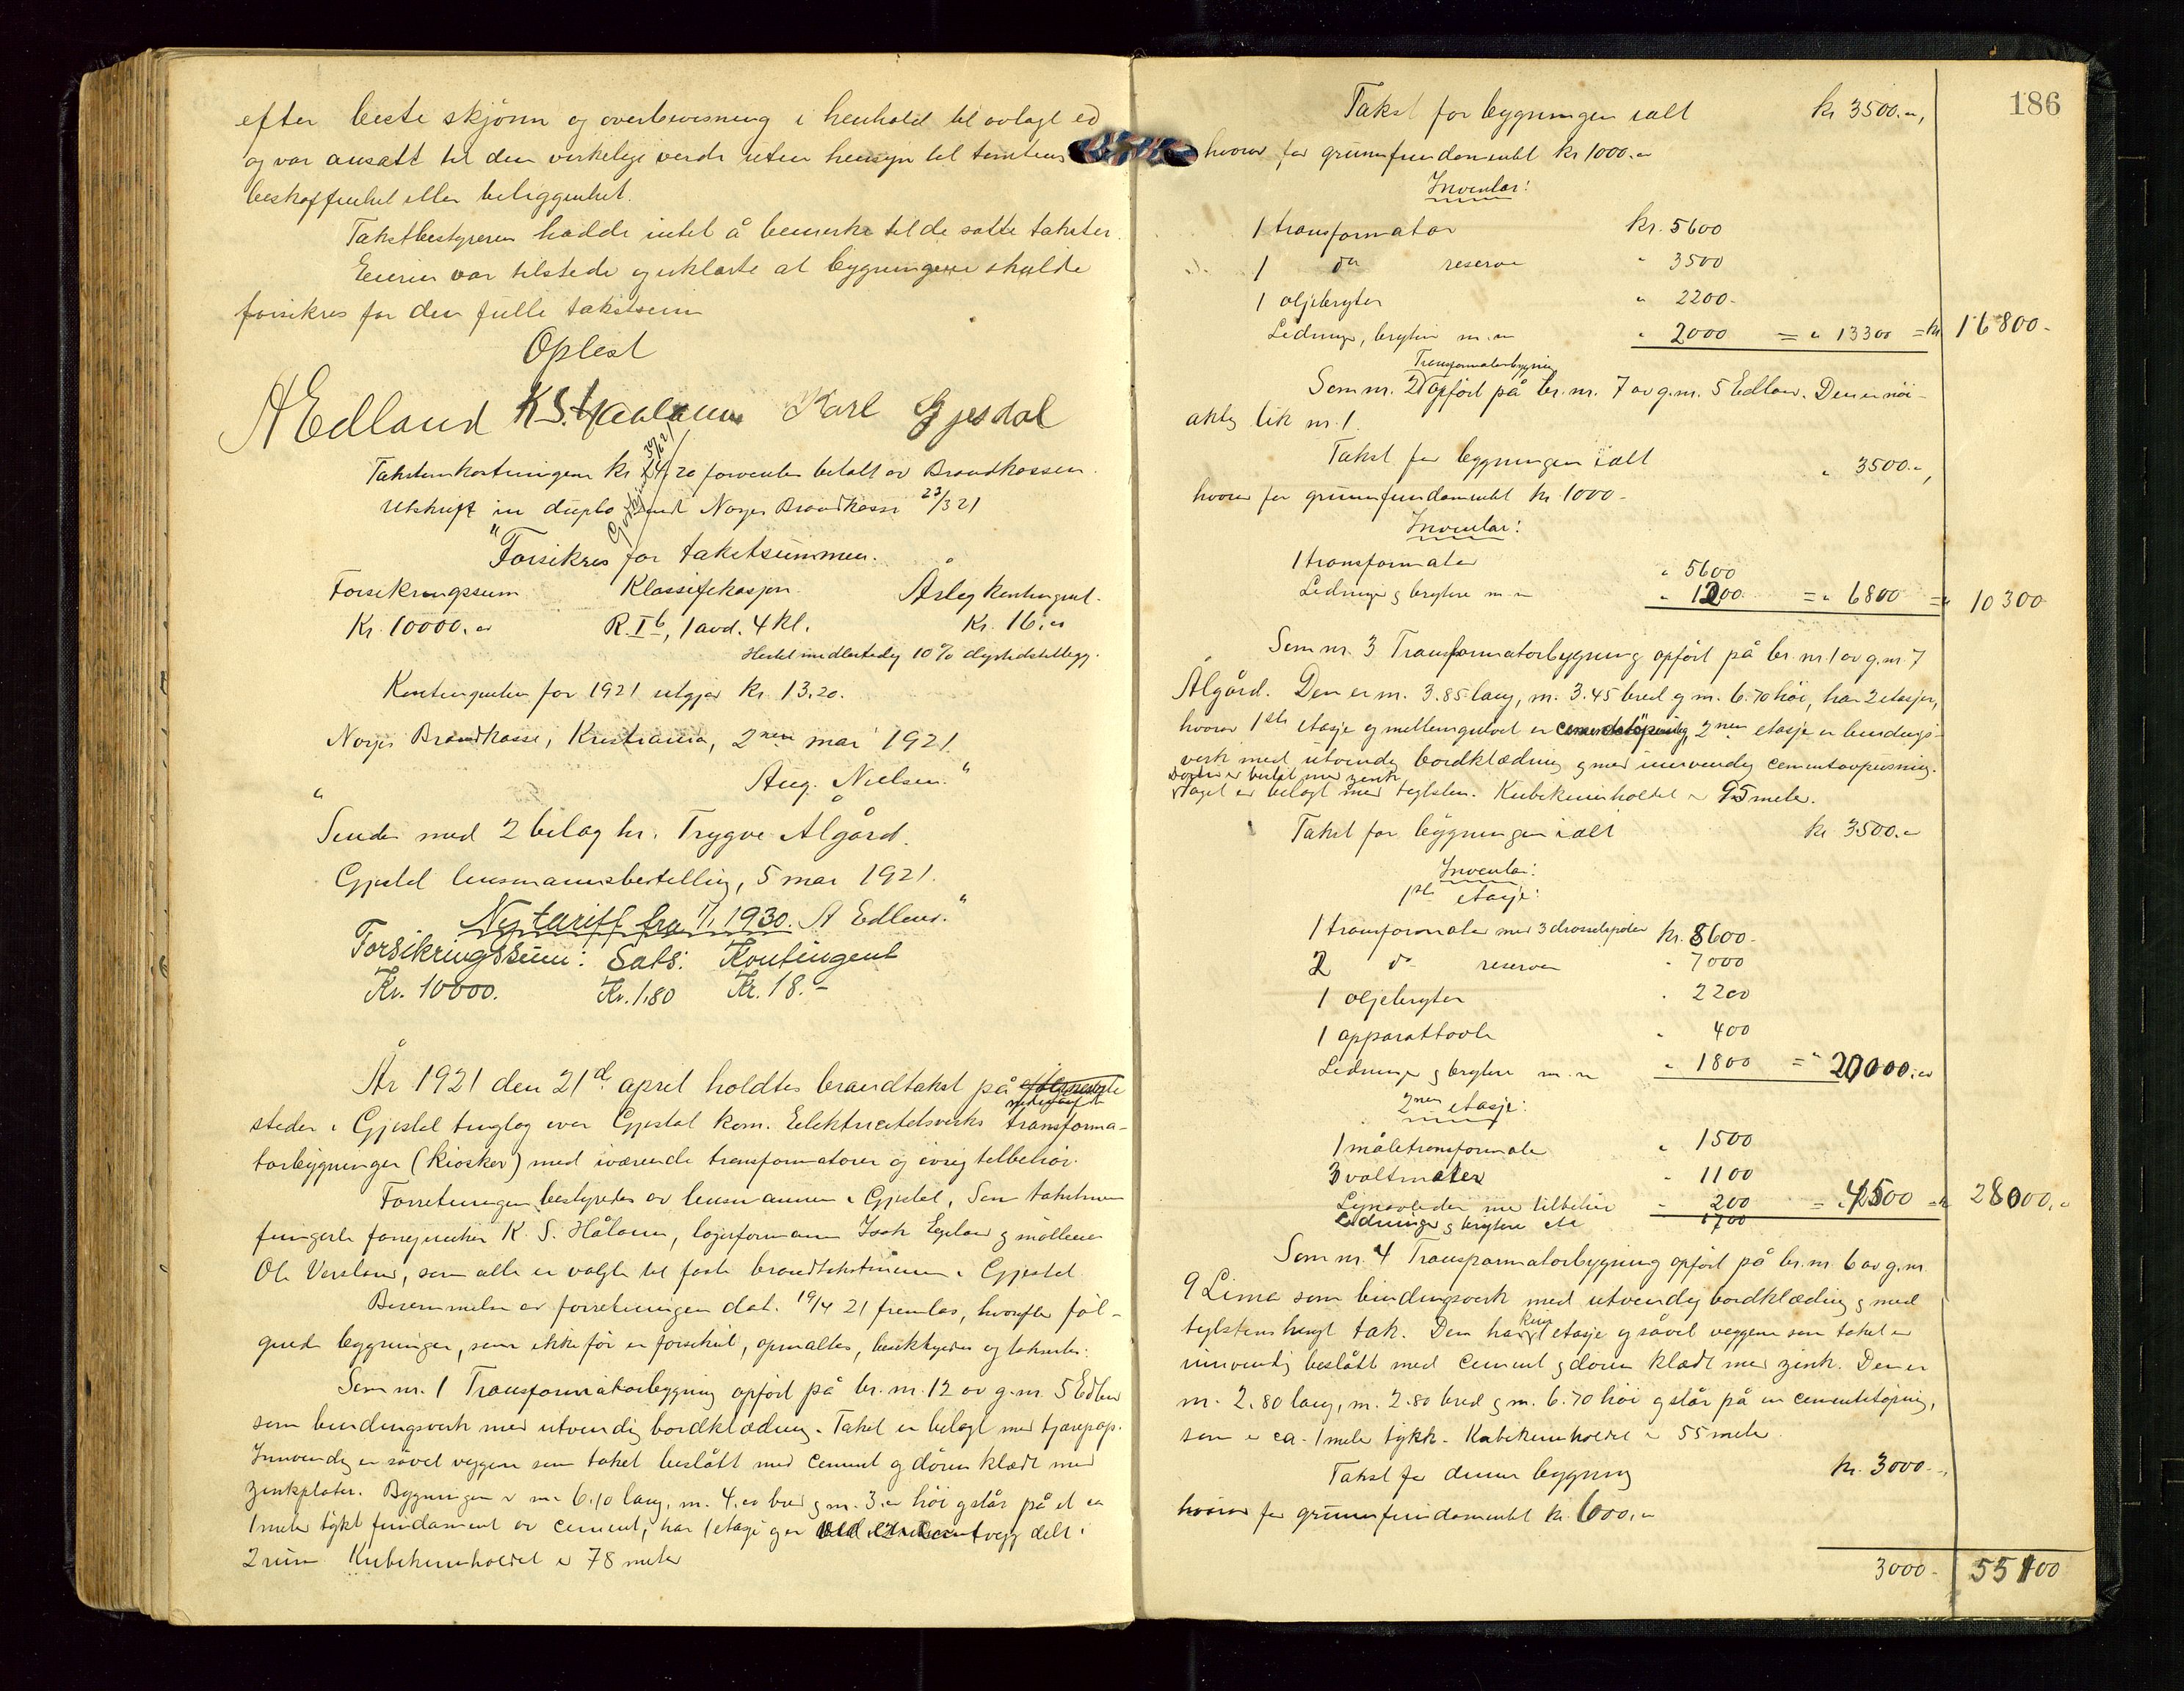 efter beste skjönn og overbevisning i henhold til avlagt ed
og var ansatt til den virkelige verdi uten hensyn til tomtens
beskaffenhet eller beliggenhet.
Takstbestyreren hadde intet å bemerke til de satte takster.
Eieren var tilstede og erklærte at bygningene skulde
forsikres for den fulle takstsum
Oplest
A Edland K. S. Haaland Karl Gjesdal
Takstomkostningene kr. 24,20 forventes betalt av Brandkassen.
Utskrift in duplo sendt Norges Brandkasse 23/3 21
"Forsikres for takstsummen.
Forsikringssum Klassifikasjon Årleg kontingent.
Kr. 10000.00 R. I b, 1 avd. 4 kl. Kr. 16.00
Hertil midlertidig 10% dyrtidstillegg.
Kontingenten for 1921 utgjør kr. 13.20.
Norges Brandkasse, Kristiania, 2nen mai 1921.
Aug. Nielsen."
"
Sendes med 2 bilag hr. Trygve Ålgård.
Gjestal lensmannsbestilling, 5 mai 1921.
A Edland."
Ny tariff fra 1/1 1930.
Forsikringssum: Sats: Kontingent
Kr. 10000. Kr. 1,80 Kr. 18.-
År 1921 den 21de april holdtes brandtakst på
nedenfornevnte
steder i Gjestal tinglag over Gjestal kom. Elektricitetsverks transforma-
torbygninger (kiosker) med iværende transformatorer og övrig tilbehör.
Forretningen bestyredes av lensmannen i Gjestal. Som takstmenn
fungerte forgjenker K. S. Håland, lagsformann Isak Egeland og möller
Ole Varsland, som alle er valgte til faste brandtakstmenn i Gjestal.
Berammelse av forretningen dat. 19/4 21 fremlas, hvorefter föl-
gende bygninger, som ikke för er forsikret, opmaltes, besiktigedes og taksertes:
Som nr. 1 Transformatorbygning opfört på br. nr. 12 av g. nr. 5 Edland
som bindingsverk med utvendig bordklædning. Taket er belagt med tjærepap.
Innvendig er såvel veggene som taket beslått med cement og dören klædt med
zinkplater. Bygningen er m. 6.10 lang, m. 4.00 bred og m. 3.00 höi og står på et ca
1 meter tykt fundament av cement, har 1 etage og er ved en vegg delt i
2 rum. Kubikinnholdet er 78 meter
186
Takst for bygningen ialt kr 3500.00,
hvorav for grunnfundamentet kr 1000.00
Inventar:
1 transformator kr. 5600
1 do reserve " 3500
1 oljebryter " 2200-
Ledninger, brytere m.m. " 2000 = " 13300 = kr 16800-
Som nr. 2 Transformatorbygning opfört på br. nr. 7 av g. nr. 5 Edland. Den er nöi-
aktig lik nr. 1.
Takst for bygningen ialt " 3500.00,
hvorav for grunnfundamentet kr. 1000-
Inventar:
1 transformator " 5600
Ledninger og brytere m.m. " 1200 = " 6800 = " 10300
Som nr. 3 Transformatorbygning opfört på br. nr. 1 av g. nr. 7
Ålgård. Den er m. 3.85 lang, m. 3.45 bred og m. 6.70 höi, har 2 etasjer,
hvorav 1ste etasje og mellemgulvet er cementstöpning, 2nen etasje er bindings-
verk med utvendig bordklædning og med innvendig cementavpussning.
Dören er beslåt med zink
Taget er belagt med teglsten. Kubikinnholdet er 95 meter.
Takst for bygningen ialt kr 3500.00
Inventar:
1ste etasje:
1 transformator med 3 drosselspoler kr. 8600-
2 do reserver " 7000
1 oljebryter " 2200
1 apparattavle " 400
Ledninger og brytere m.m. " 1800 = " 20000.00
2nen etasje:
1 måletransformator " 1500
3 voltmeter " 1100
Lynavleder med tilbehör " 200 = " 4500 = " 28000.00
Ledninger og brytere etc 1700
Som nr. 4 Transformatorbygning opfört på br. nr. 6 av g. nr.
9 Lima som bindingsverk med utvendig bordklædning og med
teglstenshengt tak. Den har kun 1 etasje og såvel veggene som taket er
innvendig beslått med cement og dören klædt med zink. Den er
m. 2.80 lang, m. 2.80 bred og m. 6.70 höi og står på en cementstöpning,
som er ca. 1 meter tykk. Kubikinnholdet er 55 meter.
Takst for denne bygning kr. 3000-,
hvorav for grunnfundamentet kr. 600.00
3000- 55100